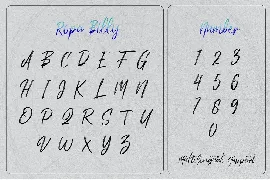 Ropu Billy
A B C D E F G
H I J K L M N
O P Q R S T U
V W X Y Z
Number
1 2 3
4 5 6
7 8 9
0
Multilingual Support